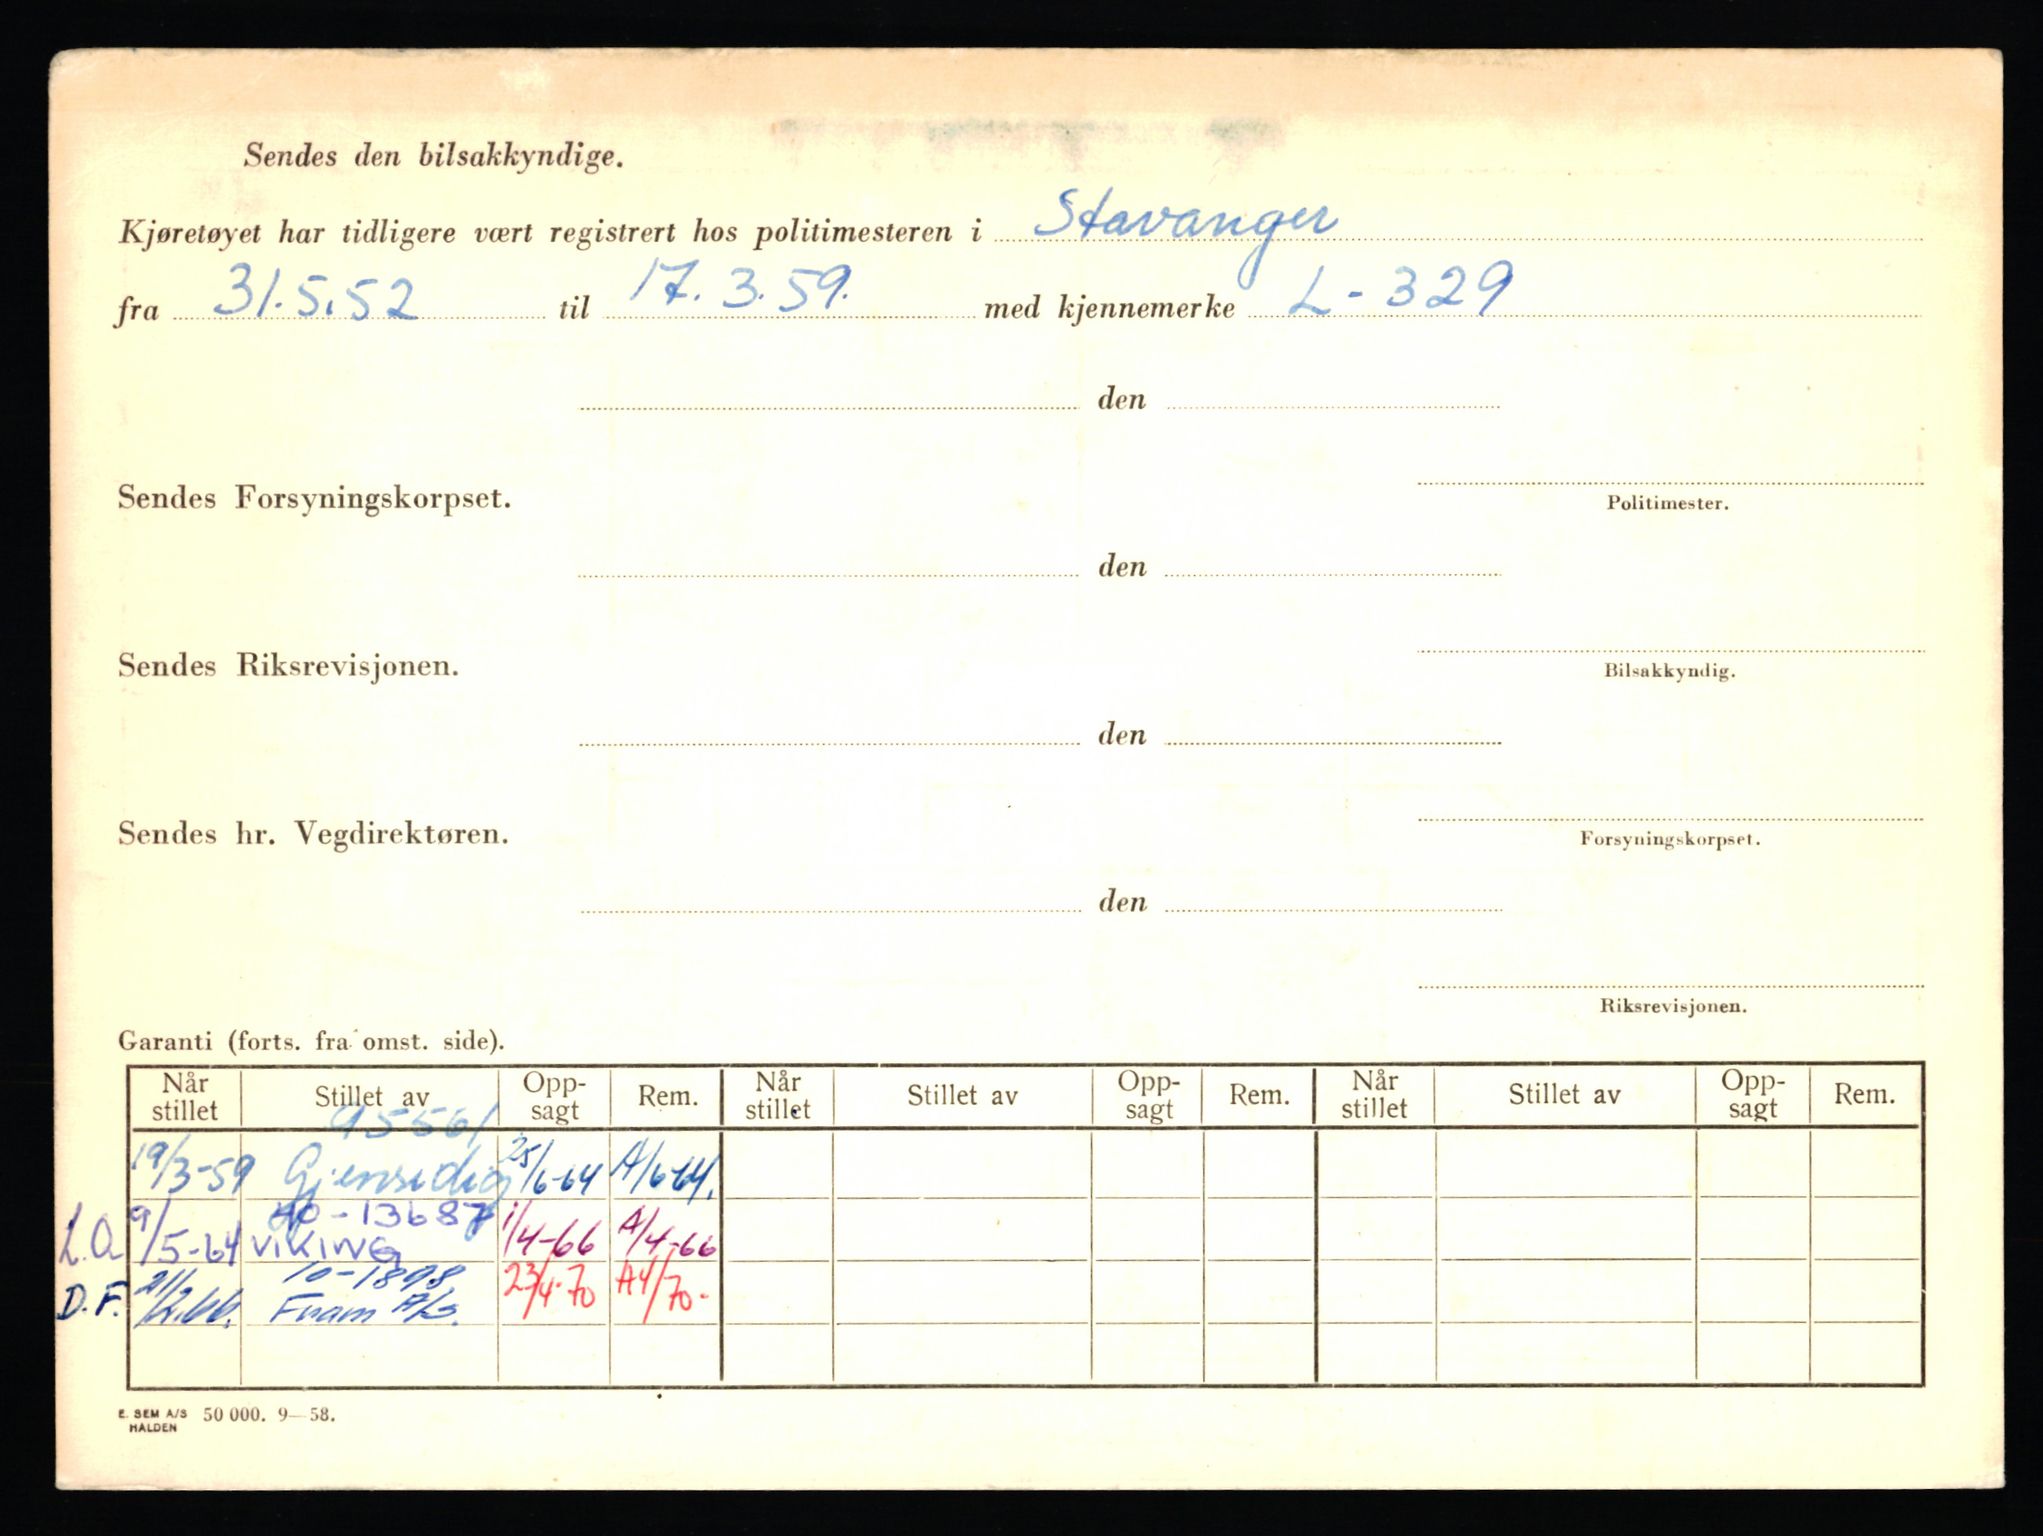 Sendes den bilsakkyndige.
Kjøretøyet har tidligere vært registrert hos politimesteren i Stavanger
fra 31.5.52 til 17.3.59. med kjennemerke L-329
den
Sendes Forsyningskorpset.
Politimester.
den
Sendes Riksrevisjonen.
Bilsakkyndig.
den
Sendes hr. Vegdirektøren.
Forsyningskorpset.
den
Riksrevisjonen.
Garanti (forts. fra omst. side).
Når stillet Stillet av Opp-sagt Rem. Når stillet Stillet av Opp-sagt Rem. Når stillet Stillet av Opp-sagt Rem.
95561
19/3-59 Gjensidig 25/6-64 A/6-64.
-13687
9/5-64 VIKING 1/4-66 A/4-66
10-1898
D.F. 21/2.66. Fram A/S. 23/4-70 A4/70.
E. SEM A/S HALDEN 50 000. 9-58.